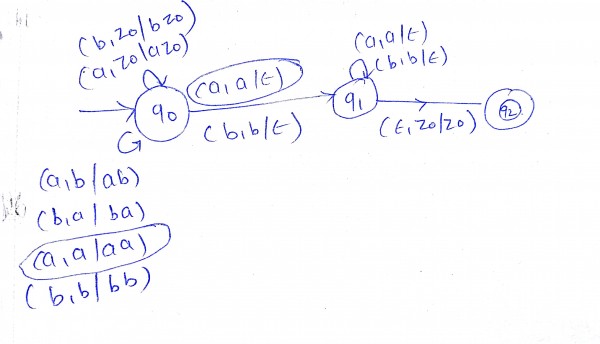 (b,z0/bz0)
(a,z0/az0)
(a,a/ε)
(a,a/ε)
(b,b/ε)
q0
q1
q2
(b,b/ε)
(ε,z0/z0)
(a,b/ab)
(b,a/ba)
(a,a/aa)
(b,b/bb)